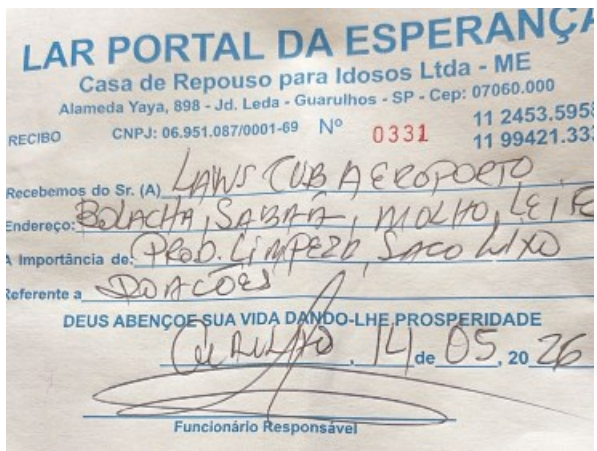 LAR PORTAL DA ESPERANÇA
Casa de Repouso para Idosos Ltda - ME
Alameda Yaya, 898 - Jd. Leda - Guarulhos - SP - Cep: 07060.000
RECIBO CNPJ: 06.951.087/0001-69 Nº 0331 11 2453.5958
11 99421.333
Recebemos do Sr. (A) LAWS CUB AEROPORTO
Endereço: BOLACHA, SABÃO, MOLHO, LEITE
A Importância de: PROD. LIMPEZA, SACO LIXO
Referente a DOACOES
DEUS ABENÇOE SUA VIDA DANDO-LHE PROSPERIDADE
14 de 05, 20 26
Funcionário Responsável